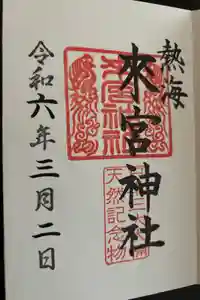 熱海
來宮神社
天然記念物
令和六年三月二日